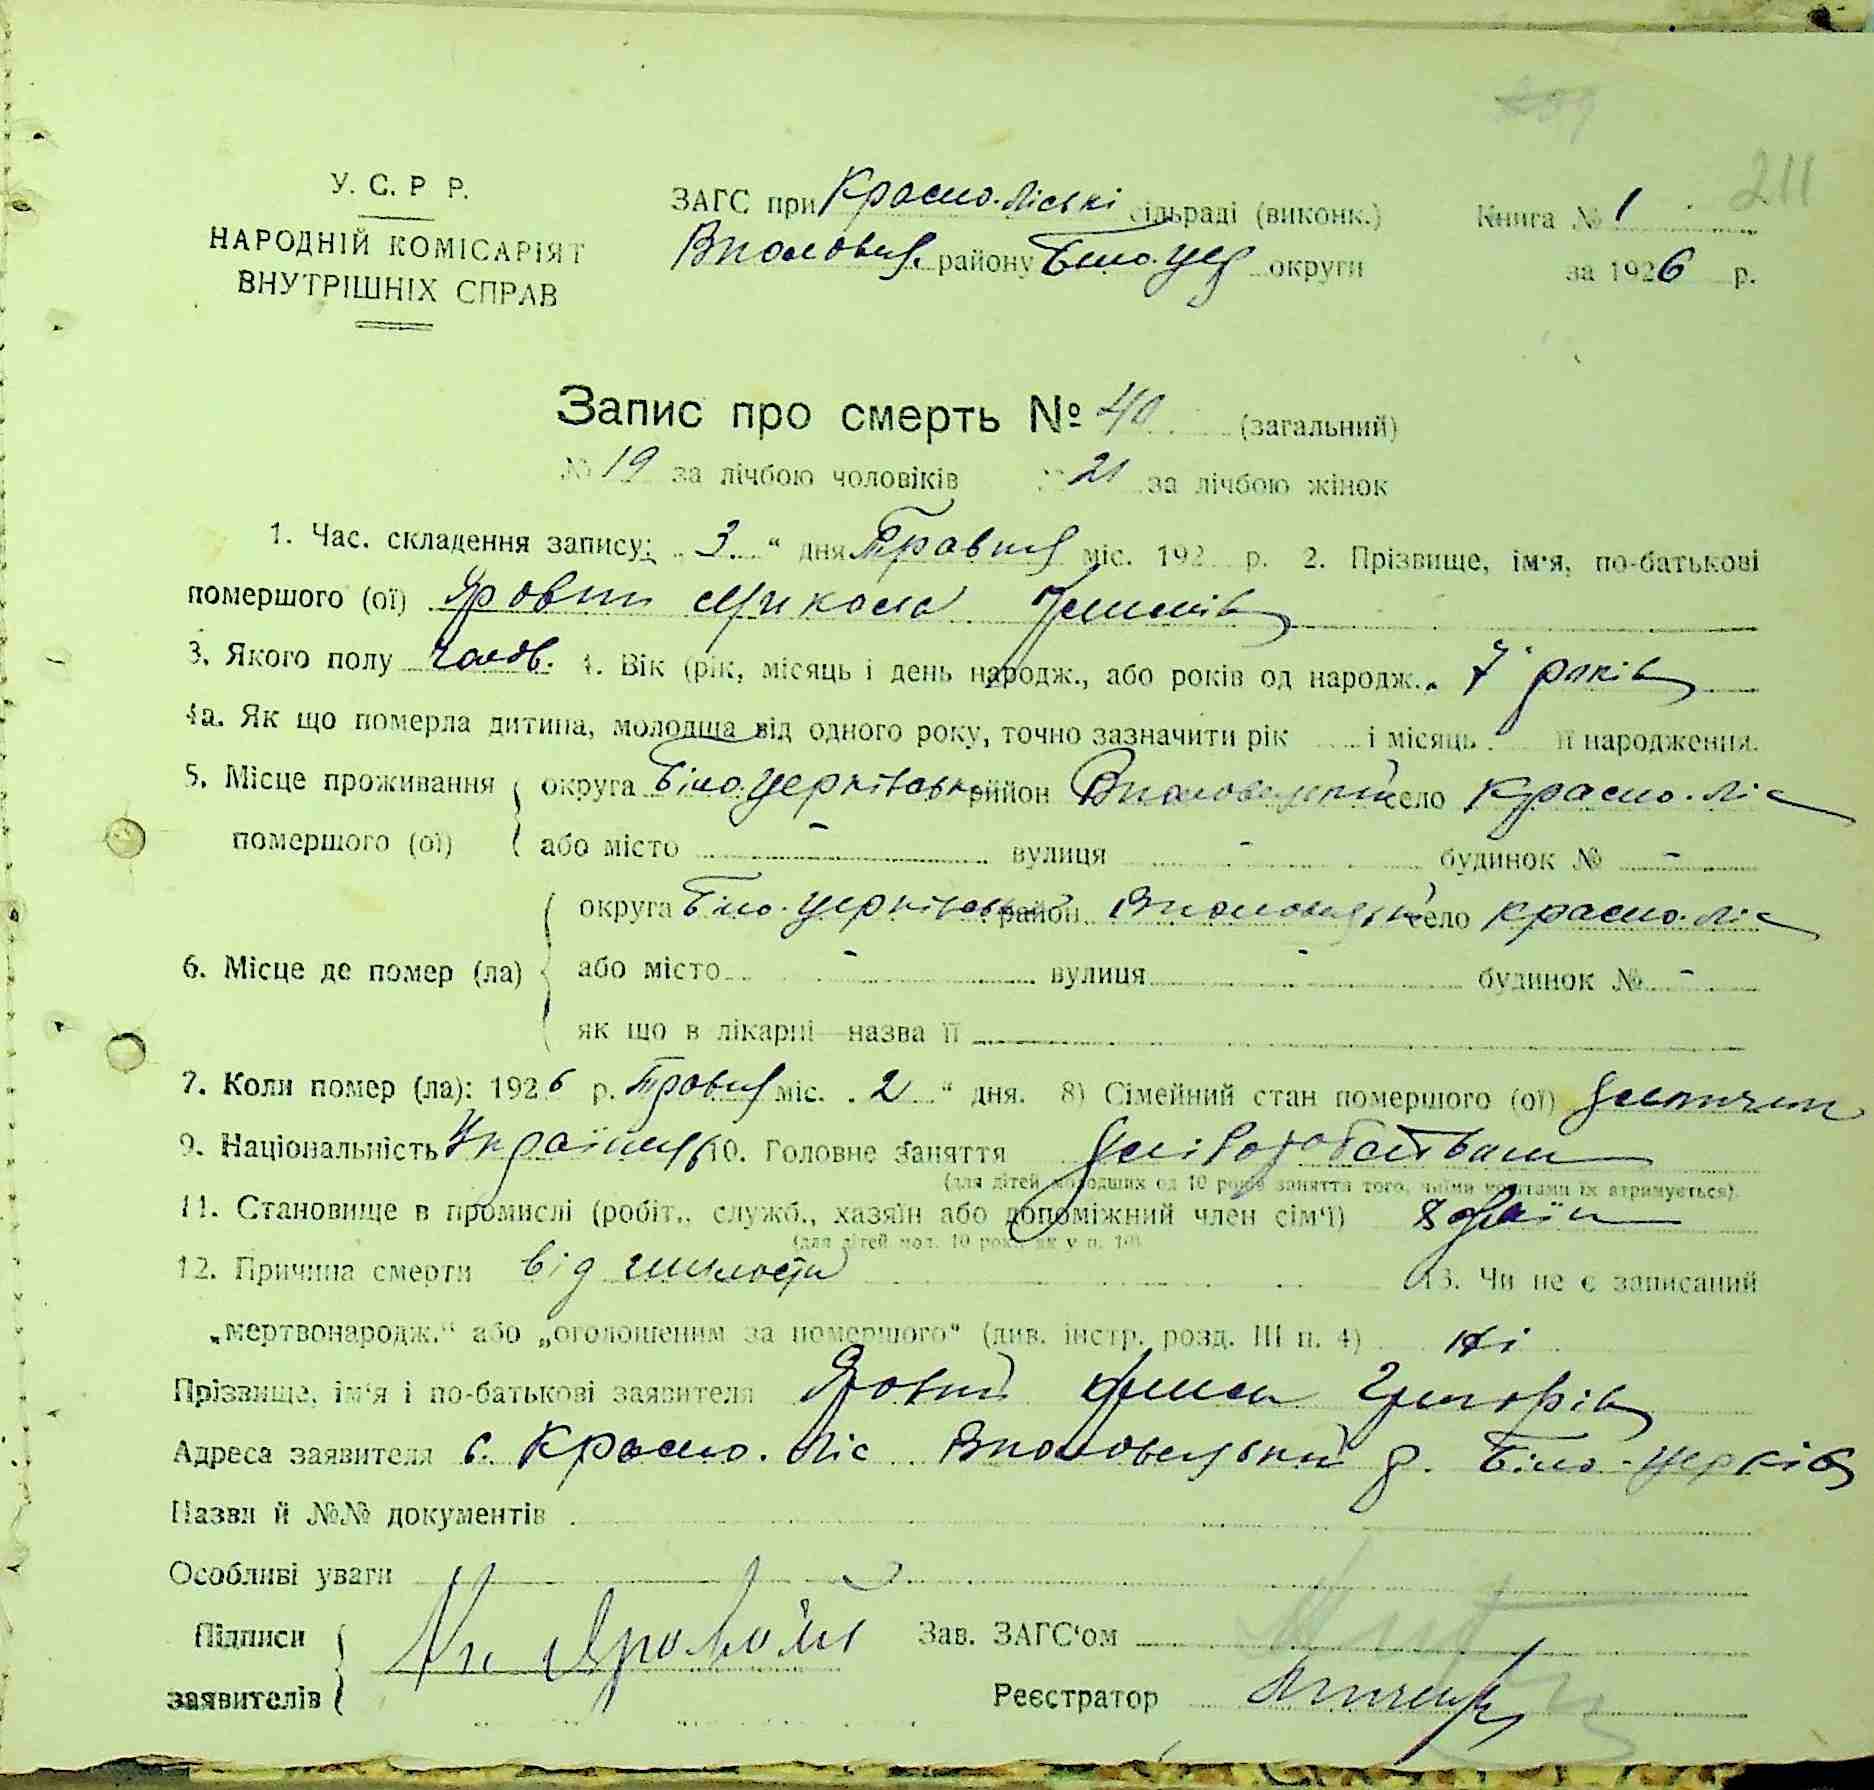 211
У. С. Р Р.
НАРОДНІЙ КОМІСАРІЯТ
ВНУТРІШНІХ СПРАВ
ЗАГС при Красно-Ліські сільраді (виконк.) Книга № 1
району Біло-Цер округи за 1926 р.
Запис про смерть № 40 (загальний)
№ 19 за лічбою чоловіків № 21 за лічбою жінок
1. Час. складення запису: „ 3 “ дня Травня міс. 192 р. 2. Прізвище, ім'я, по-батькові
померлого (ої) Яровий Микола
3. Якого полу чолов. 4. Вік (рік, місяць і день народж., або років од народж.. 7 років
4а. Як що померла дитина, молодша від одного року, точно зазначити рік і місяць її народження.
5. Місце проживання округа Біло-Церківська район село Красно-Ліс
помершого (ої) або місто - вулиця - будинок № -
округа Біло-Церківська район село Красно-Ліс
6. Місце де помер (ла) або місто - вулиця - будинок № -
як що в лікарні—назва її
7. Коли помер (ла): 1926 р. Травня міс. „ 2 “ дня. 8) Сімейний стан помершого (ої)
9. Національність Українець 10. Головне заняття
(для дітей молодших од 10 років заняття того, чиїми коштами їх втримується).
11. Становище в промислі (робіт., служб., хазяїн або допоміжний член сім'ї) Хазяїн
(для дітей мол. 10 років як у п. 10)
12. Причина смерти від 13. Чи не є записаний
„мертвонародж.“ або „оголошеним за помершого“ (див. інстр. розд. III п. 4) Ні
Прізвище, ім'я і по-батькові заявителя Яровий
Адреса заявителя с. Красно-Ліс р. Біло-Церків
Назви й №№ документів
Особливі уваги
Підписи Яровой Зав. ЗАГС'ом
заявителів Реєстратор